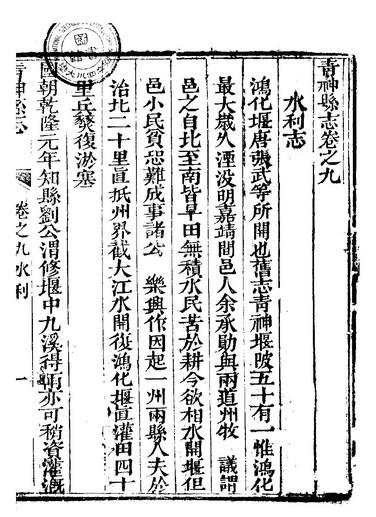 青神縣志卷之九
水利志
鴻化堰唐張武等所開也舊志青神堰陂五十有一惟鴻化
最大歲久湮没明嘉靖間邑人余承勛與兩道州牧 議謂
邑之自北至南皆旱田無積水民苦於耕今欲相水開堰但
邑小民貧恐難成事諸公 樂興作因起一州兩縣人夫於
治北二十里直抵州界截大江水開復鴻化堰直灌田四十
里兵燹復淤塞
國朝乾隆元年知縣劉公渭修堰中九溪得雨亦可稍資灌溉
青神縣志
卷之九水利
一